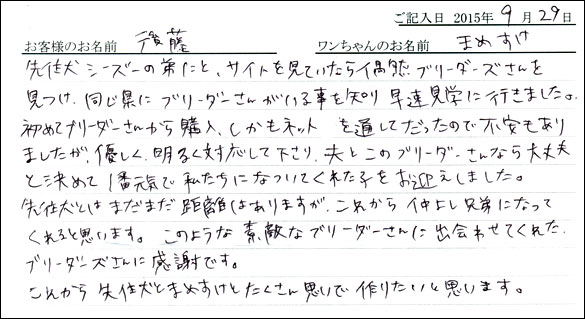 ご記入日 2015年 9月 29日
お客様のお名前 後藤 ワンちゃんのお名前 まめすけ
先住犬シーズーの弟にと、サイトを見ていたら偶然ブリーダーズさんを
見つけ、同じ県にブリーダーさんがいる事を知り早速見学に行きました。
初めてブリーダーさんから購入、しかもネットを通してだったので不安もあり
ましたが、優しく、明るく対応して下さり、夫とこのブリーダーさんなら大丈夫
と決めて1番元気で私たちになついてくれた子をお迎えしました。
先住犬とはまだまだ距離はありますが、これから仲よし兄弟になって
くれると思います。このような素敵なブリーダーさんに出会わせてくれた、
ブリーダーズさんに感謝です。
これから先住犬とまめすけとたくさん思いで作りたいと思います。